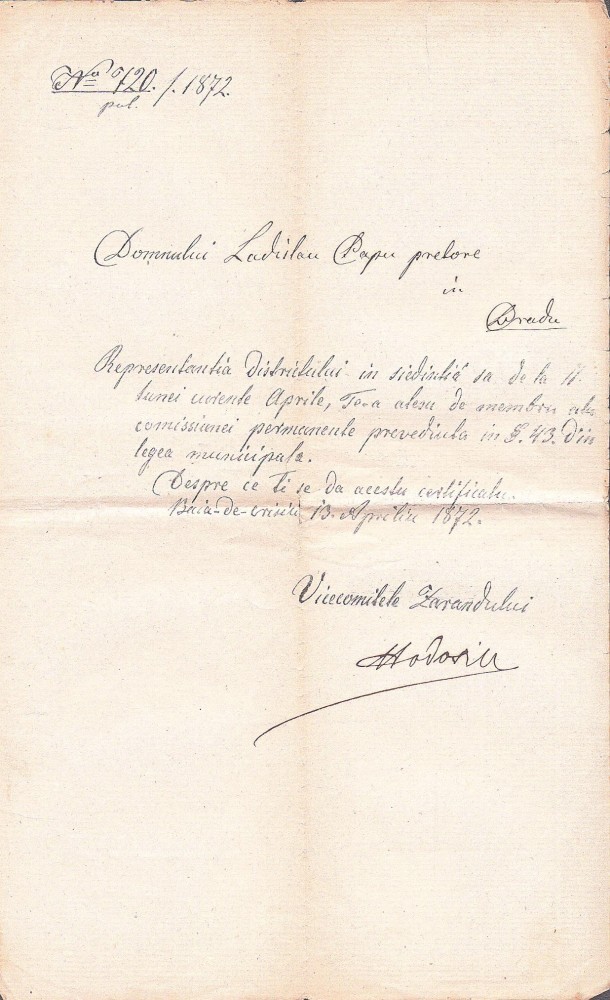 No 720. /. 1872.
pol.
Domnului Ladislau Papu pretore
in
Bradu
Representantia districtului in siedintia sa de la 11
lunei curente Aprile, Te-a alesu de membru alu
comissiunei permanente prevediuta in §. 43. din
legea municipala.
Despre ce Ti se da acestu certificatu.
Baia-de-crisiu 13. Apriliu 1872.
Vicecomitele Zarandului
Hodosiu